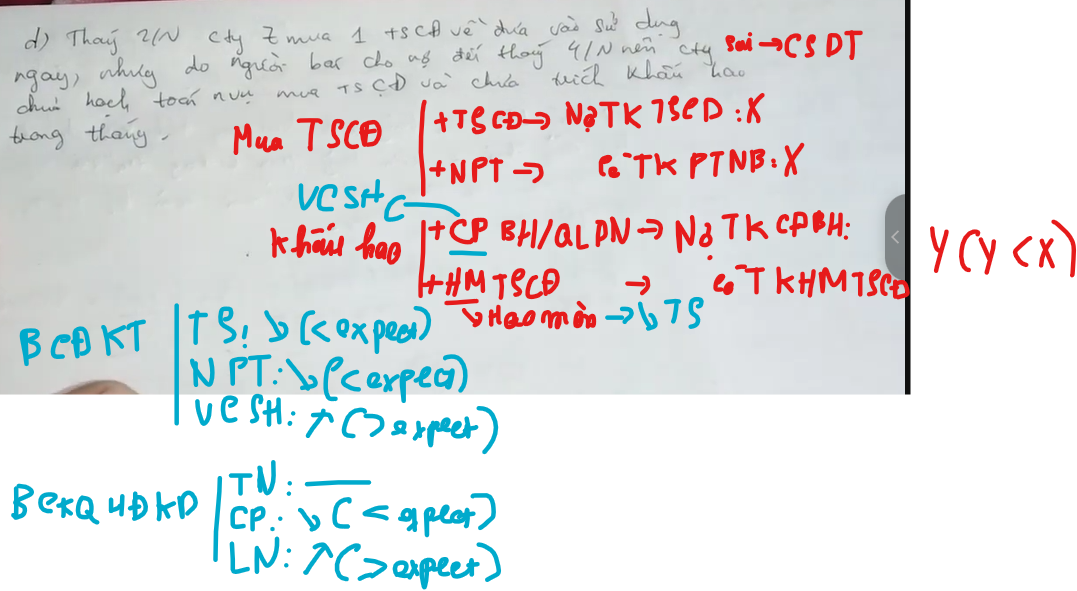 d) Tháng 2/N cty Z mua 1 TSCĐ về đưa vào sử dụng
ngay, nhưng do người bán cho nợ đến tháng 4/N nên cty
sai → CSDT
chưa hạch toán nvụ mua TSCĐ và chưa trích khấu hao
trong tháng.
Mua TSCĐ
+ TSCĐ → Nợ TK TSCD : X
+ NPT → Có TK PTNB : X
VCSH
Khấu hao
+ CP BH/QLDN → Nợ TK CPBH:
Y (Y < X)
+ HM TSCĐ → Có TK HM TSCĐ
↳ Hao mòn → ↓ TS
BCĐKT
TS: ↘ (< expect)
NPT: ↘ (< expect)
VCSH: ↗ (> expect)
BCKQHĐKD
TN: —
CP: ↘ (< expect)
LN: ↗ (> expect)